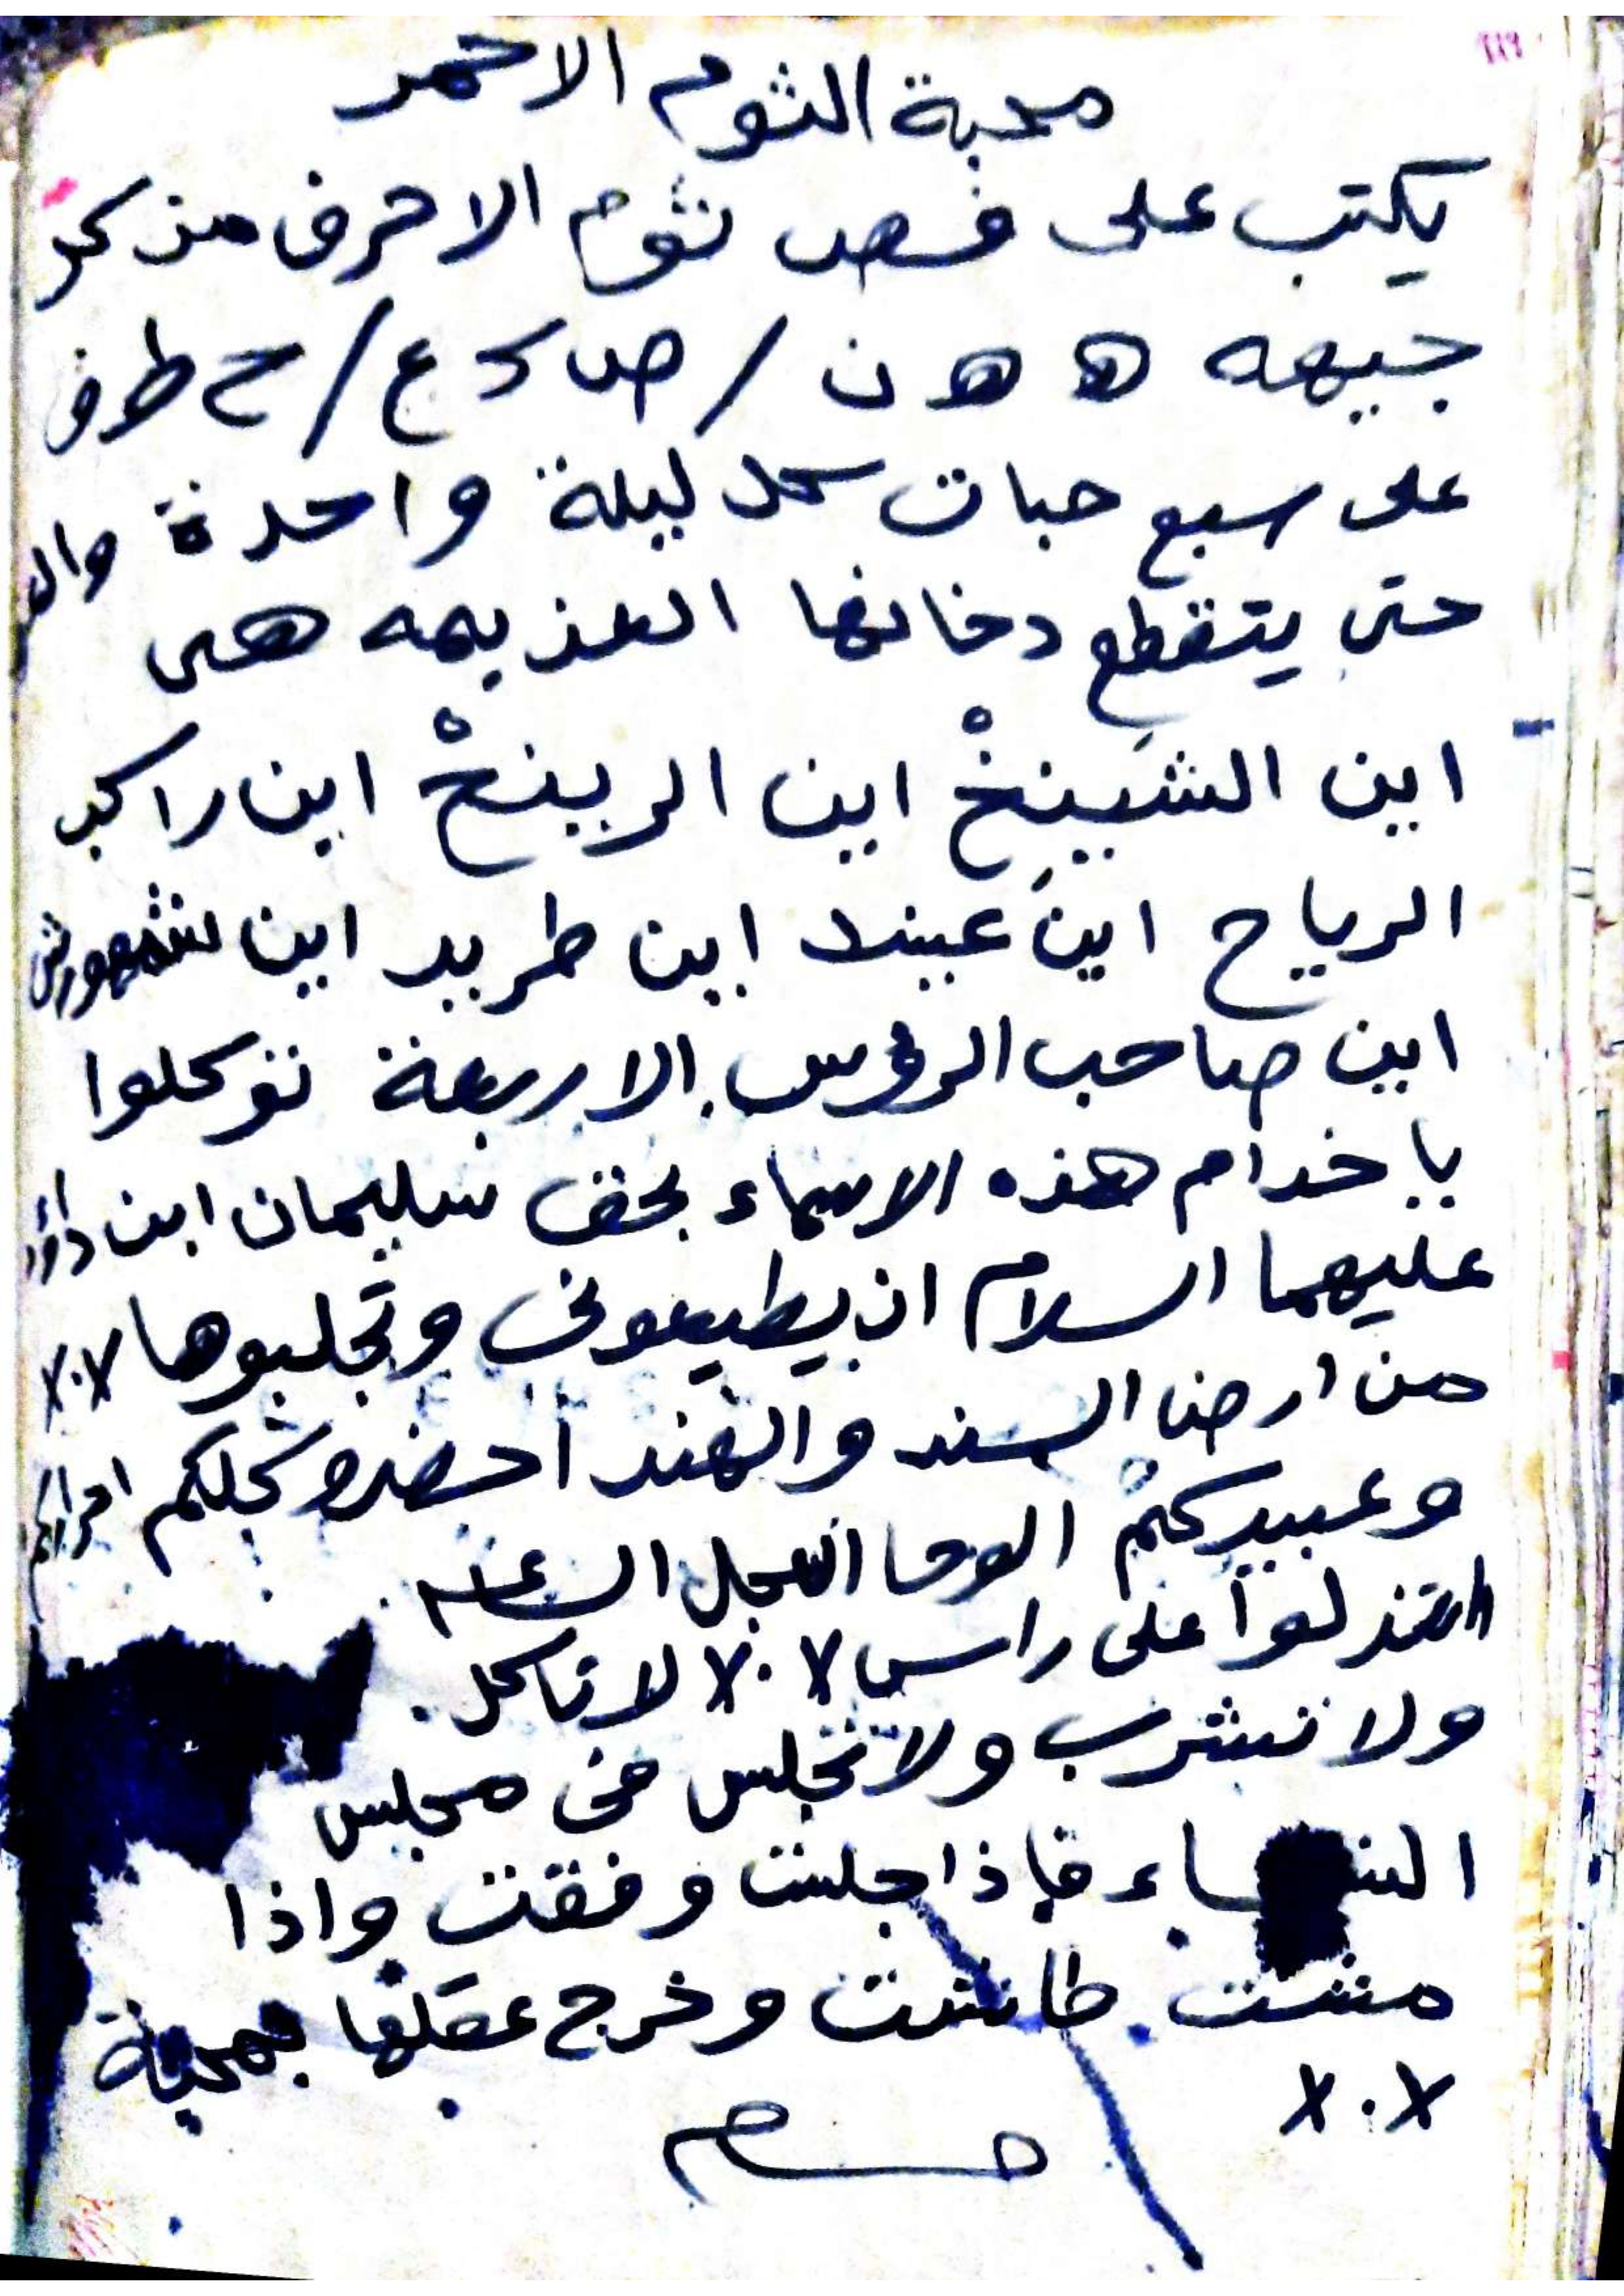 محبة الثوم الاحمر
يكتب على فص ثوم الاحرف من كل
جيهه ه ه ن / ص د ع / ح ط ف
على سبع حبات كل ليلة واحدة
حتى يتقطع دخانها العذيمه هى
اين الشيينخْ اين الريينخْ اين راكب
الرياح اين عبيند اين طريد اين شمهورش
اين صاحب الرؤس الاربعة توكلوا
يا خدام هذه الاسماء بحق سليمان ابن داؤد
عليهما السلام ان يطيعونى وتجلبوها ٧.٧
من ارض السند والهند احضرو كلكم
وعبيدكم الوحا العجل الساعه
انتذلوا على راس ٧.٧ لا تاكل.
ولا تشرب ولا تجلس فى مجلس
النساء فإذا جلست وفقت واذا
مشت طاشت وخرج عقلها بمحبة
٧.٧